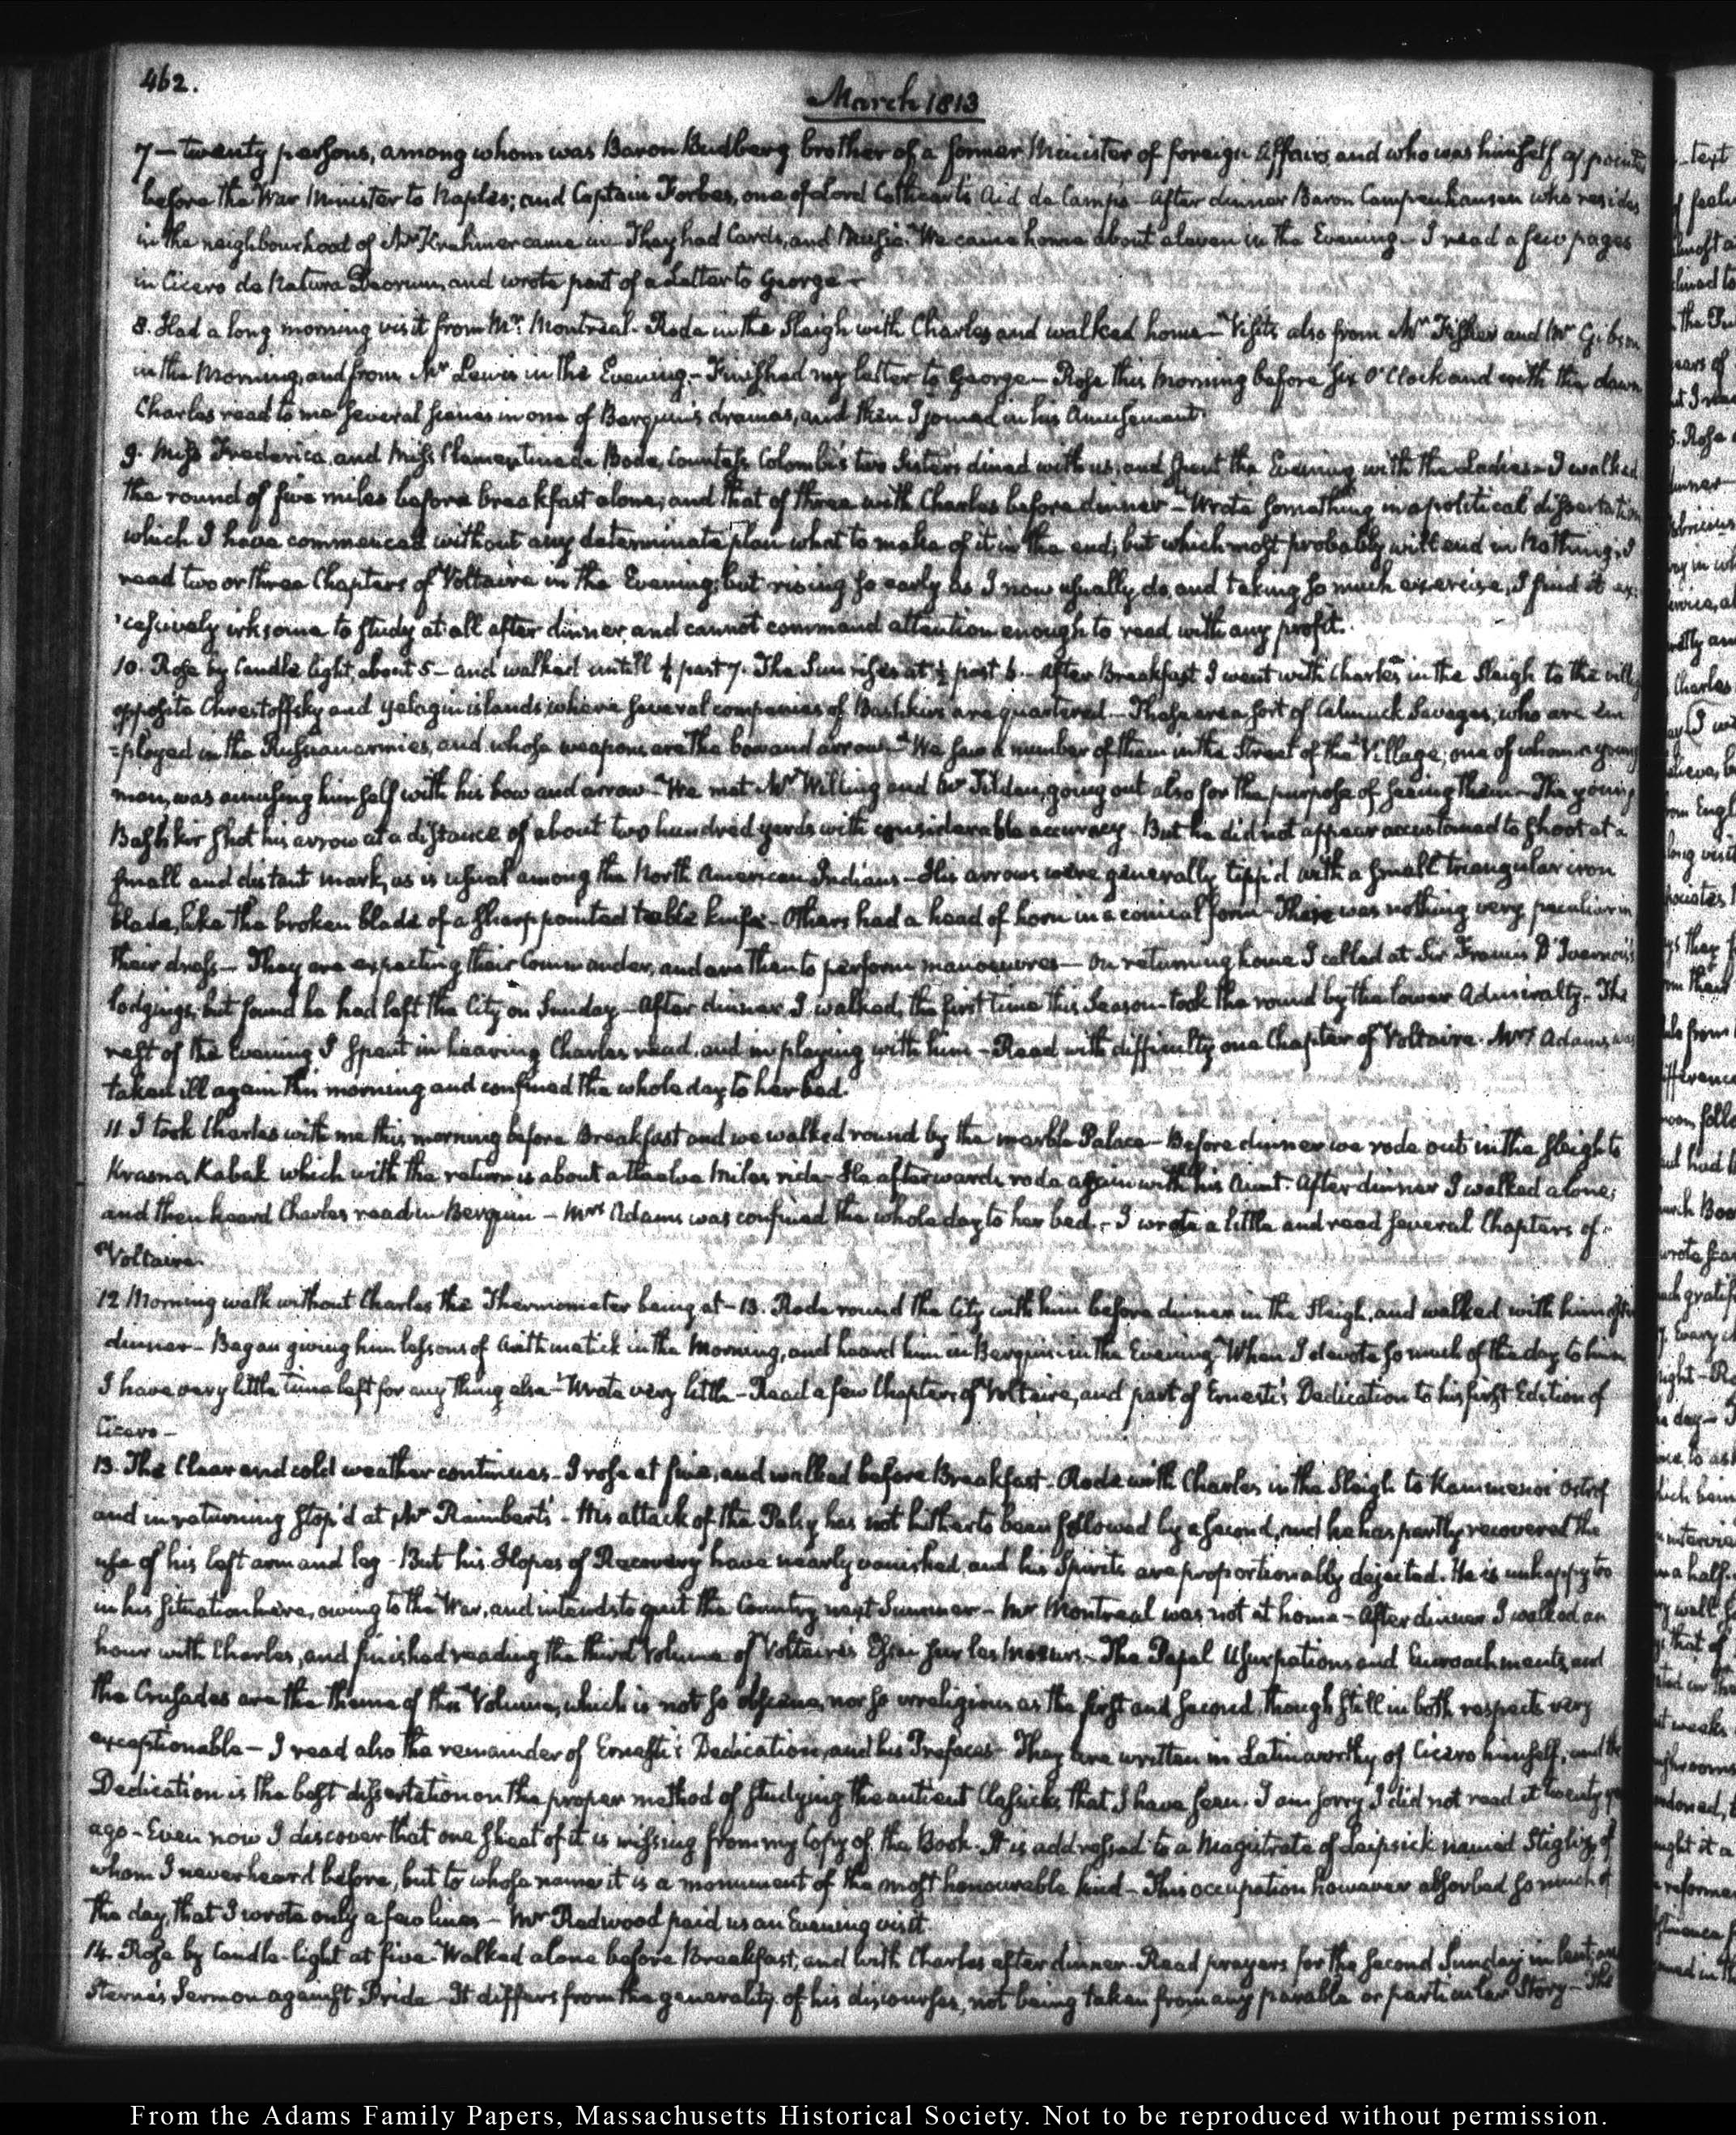 462.
March 1813
7 — twenty persons, among whom was Baron Budberg brother of a former Minister of foreign Affairs and who was himself appointed
before the War Minister to Naples; and Captain Forbes, one of Lord Cathcart's Aid de Camps — After dinner Baron Campenhausen who resides
in the neighbourhood of Mr Krehmer came in. They had Cards, and Music. We came home about eleven in the Evening — I read a few pages
in Cicero de Natura Deorum, and wrote part of a Letter to George —
8. Had a long morning visit from Mr. Montréal. Rode in the Sleigh with Charles and walked home — Visits also from Mr Fisher and Mr Gibson
in the Morning, and from Mr Lewis in the Evening. — Finished my letter to George — Rose this Morning before six O'Clock and with the dawn
Charles read to me several scenes in one of Berquin's dramas, and then I joined in his Amusement.
9. Miss Frederica, and Miss Clementine de Bode, Countess Colombi's two Sisters dined with us, and spent the Evening with the Ladies — I walked
the round of five miles before breakfast alone; and that of three with Charles before dinner — Wrote something in a political dissertation
which I have commenced without any determinate plan what to make of it in the end; but which most probably will end in Nothing. I
read two or three Chapters of Voltaire in the Evening; but rising so early as I now usually do, and taking so much exercise, I find it ex-
'cessively irksome to study at all after dinner, and cannot command attention enough to read with any profit.
10. Rose by Candle light, about 5 — and walked untill ½ past 7. The Sun rises at ½ past 6. — After Breakfast I went with Charles in the Sleigh to the village
opposite Chrestoffsky and Yelagin islands, where several companies of Bashkirs are quartered — These are a sort of Calmuck Savages, who are em
=ployed in the Russian armies, and whose weapons are the bow and arrow — We saw a number of them in the Street of the Village; one of whom a young
man, was amusing himself with his bow and arrow — We met Mr Willing and Mr Tilden, going out also for the purpose of seeing them — The young
Bashkir shot his arrow at a distance of about two hundred yards with considerable accuracy. But he did not appear accustomed to shoot at a
small and distant mark, as is usual among the North American Indians — His arrows were generally tipp'd with a small triangular iron
blade, like the broken blade of a sharp pointed table knife — Others had a head of horn in a conical form — There was nothing very peculiar in
their dress — They are expecting their Commander, and are then to perform manoeuvres — On returning home I called at Sir Francis D'Ivernois's
lodgings; but found he had left the City on Sunday — After dinner I walked, the first time this Season — took the round by the lower Admiralty — The
rest of the Evening I spent in hearing Charles read, and in playing with him — Read with difficulty one Chapter of Voltaire. Mrs Adams was
taken ill again this morning and confined the whole day to her bed.
11. I took Charles with me this morning before Breakfast and we walked round by the marble Palace — Before dinner we rode out in the sleigh to
Krasna Kabak which with the return is about a twelve Miles ride — He afterwards rode again with his Aunt. After dinner I walked alone;
and then heard Charles read in Berquin — Mrs Adams was confined the whole day to her bed. — I wrote a little and read several Chapters of
Voltaire.
12 Morning walk without Charles the Thermometer being at — 13. Rode round the City with him before dinner in the Sleigh, and walked with him after
dinner — Began giving him lessons of Arithmatick in the Morning, and heard him in Berquin in the Evening. When I devote so much of the day to him
I have very little time left for any thing else — Wrote very little — Read a few Chapters of Voltaire, and part of Ernesti's Dedication to his first Edition of
Cicero —
13. The Clear and cold weather continues — I rose at five, and walked before Breakfast — Rode with Charles in the Sleigh to Kammenoi Ostrof
and in returning stop'd at Mr Raimbert's — His attack of the Palsy has not hitherto been followed by a second, and he has partly recovered the
use of his left arm and leg — But his Hopes of Recovery have nearly vanished, and his Spirits are proportionably dejected. He is unhappy too
in his situation here, owing to the War, and intends to quit the Country next Summer — Mr Montreal was not at home — After dinner I walked an
hour with Charles, and finished reading the third Volume of Voltaire's Essai sur les Moeurs — The Papal Usurpations and Encroachments, and
the Crusades are the theme of this Volume, which is not so obscene, nor so irreligious as the first and second, though still in both respects very
exceptionable — I read also the remainder of Ernesti's Dedication, and his Prefaces — They are written in Latin worthy of Cicero himself, and the
Dedication is the best dissertation on the proper method of studying the antient Classicks that I have seen. I am sorry I did not read it twenty years
ago — Even now I discover that one sheet of it is missing from my Copy of the Book. It is addressed to a Magistrate of Leipsick named Stiglitz, of
whom I never heard before, but to whose name it is a monument of the most honourable kind — This occupation however absorbed so much of
the day, that I wrote only a few lines — Mr Redwood paid us an Evening visit.
14. Rose by Candle-light at five. Walked alone before Breakfast, and with Charles after dinner. Read prayers for the second Sunday in Lent, and
Sterne's Sermon against Pride — It differs from the generality of his discourses, not being taken from any parable or particular Story — The
From the Adams Family Papers, Massachusetts Historical Society. Not to be reproduced without permission.